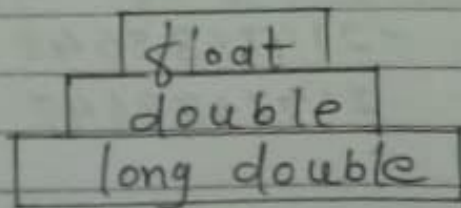 float
double
long double